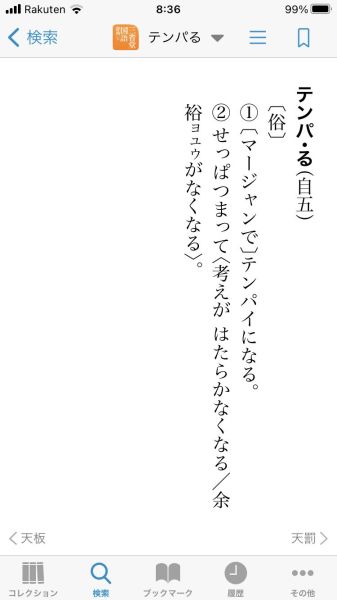 Rakuten
8:36
99%
検索
三省堂国語辞典
テンパる
テンパ・る(自五)
〔俗〕
①〔マージャンで〕テンパイになる。
② せっぱつまって〈考えが はたらかなくなる／余
裕ョユウがなくなる〉。
天板
天罰
コレクション
検索
ブックマーク
履歴
その他